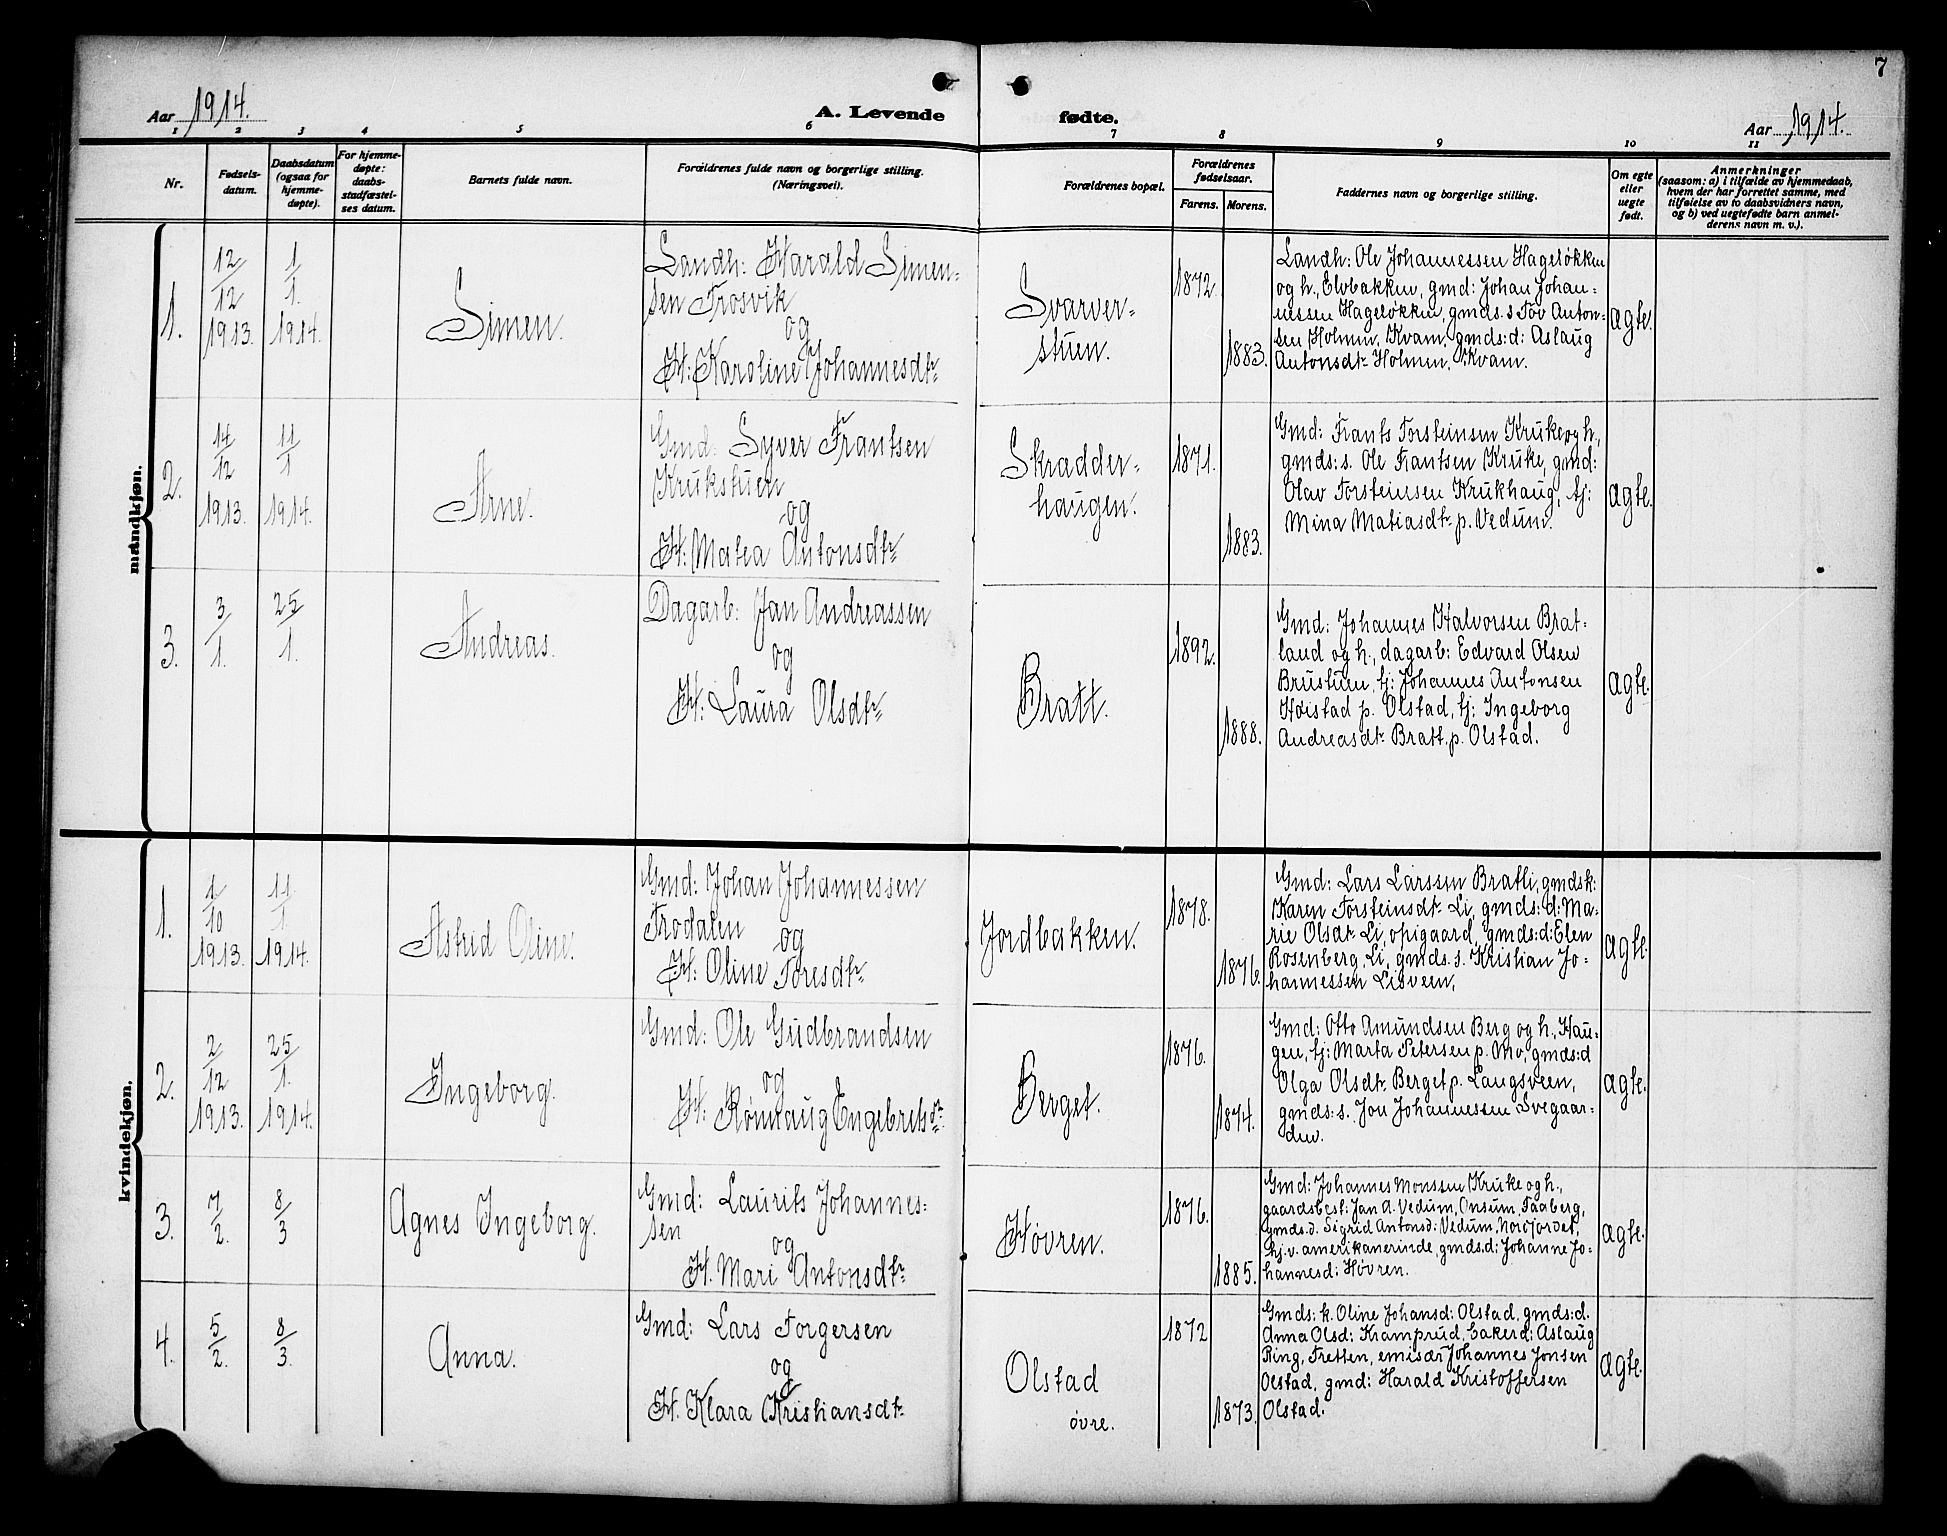 7
Aar 1914.
A. Levende fødte.
Aar 1914.
1 2 3 4 5 6 7 8 9 10 11
Nr.
Fødsels-
datum.
Daabsdatum
(ogsaa for
hjemme-
døpte).
For hjemme-
døpte:
daabs-
stadfæstel-
ses datum.
Barnets fulde navn.
Forældrenes fulde navn og borgerlige stilling.
(Næringsvei).
Forældrenes bopæl.
Forældrenes
fødselsaar.
Farens. Morens.
Faddernes navn og borgerlige stilling.
Om egte
eller
uegte
født.
Anmerkninger
(saasom: a) i tilfælde av hjemmedaab,
hvem der har forrettet samme, med
tilføielse av to daabsvidners navn,
og b) ved uegtefødte barn anmel-
derens navn m. v.).
mandkjøn.
1.
12/12 1913.
1/1. 1914.
Simen.
Landh: Harald Simen-
sen Frosvik
og
H: Karoline Johannesdtr
Svarver-
stuen.
1872
1883.
Landh: Ole Johannessen Hageløkken
og h., Elvbakken, gmd: Johan Johan-
nessen Hageløkken, gmds. s Tov Anton-
sen Holmen, Kvam, gmds: d: Aslaug
Antonsdtr Holmen, Kvam.
ægte.
2.
14/12 1913.
11/1 1914.
Arne.
Gmd: Syver Frantsen
Krukstuen
og
H: Matea Antonsdtr
Skradder-
haugen.
1871.
1883.
Gmd: Frants Torsteinsen Kruke og h.,
gmds: s. Ole Frantsen Kruke, gmd:
Olav Torsteinsen Krukhaug, tj:
Mina Matiasdtr p. Vedum.
ægte.
3.
3/1.
25/1.
Andreas.
Dagarb: Jan Andreassen
og
H: Laura Olsdtr
Bratt.
1892.
1888.
Gmd: Johannes Halvorsen Brat-
land og h., dagarb: Edvard Olsen
Brustuen, tj: Johannes Antonsen
Høistad p. Olstad, tj: Ingeborg
Andreasdtr Bratt, p. Olstad.
ægte.
kvindekjøn.
1.
1/10 1913.
11/1 1914.
Astrid Oline.
Gmd: Johan Johannessen
Frodalen og
H: Oline Toresdtr
Jordbakken.
1878.
1876.
Gmd: Lars Larssen Bratli, gmdsk:
Karen Torsteinsdtr Li, gmds: d: Ma-
rie Olsdtr Li, opigaard, gmds: d: Elen
Rosenberg, Li, gmds. s. Kristian Jo-
hannessen Lisveen,
ægte.
2.
2/12 1913.
25/1. 1914.
Ingeborg.
Gmd: Ole Gudbrandsen
og
H: Rønnaug Engebretsdtr
Berget.
1876.
1874.
Gmd: Otto Amundsen Berg og h., Hau-
gen, tj: Marta Petersen p. Mo, gmds: d
Olga Olsdtr Berget p. Laugsveen,
gmds: s. Jon Johannessen Svegaar-
den.
ægte.
3.
7/2.
8/3
Agnes Ingeborg.
Gmd: Laurits Johannes-
sen
og
H. Mari Antonsdtr
Høvren.
1876.
1885.
Gmd: Johannes Monssen Kruke og h.,
gaardsbest: Jan A. Vedum, Onsum, Faaberg,
gmds. d. Sigrid Antonsd: Vedum, Nordfordet,
hj. v. amerikanerinde, gmds. d: Johanne Jo-
hannesd: Høvren.
ægte.
4.
5/2.
8/3.
Anna.
Gmd: Lars Torgersen
og
H. Klara Kristiansdtr
Olstad
øvre.
1872
1873.
Gmds: k. Oline Johansd: Olstad, gmds: d.
Anna Olsd: Kramprud, bakerd: Aslaug
Ring, Fretten, emisær Johannes Jonsen
Olstad, gmd: Harald Kristoffersen
Olstad.
ægte.